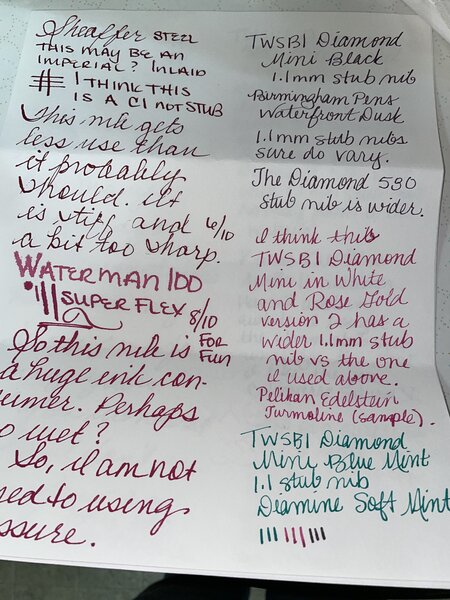 Sheaffer STEEL
THIS MAY BE AN
IMPERIAL? INLAID
# I THINK THIS
IS A CI NOT STUB
This nib gets
less use than
it probably
should. It
is stiff and 6/10
a bit too sharp.
WATERMAN 100
SUPER FLEX 8/10
FOR
FUN
So this nib is
a huge ink con-
sumer. Perhaps
wet?
So, I am not
used to using
ssure.
TWSBI Diamond
Mini Black
1.1mm stub nib
Birmingham Pens
Waterfront Dusk
1.1mm stub nibs
sure do vary.
The Diamond 580
stub nib is wider.
I think this
TWSBI Diamond
Mini in White
and Rose Gold
version 2 has a
wider 1.1mm stub
nib vs the one
I used above.
Pelikan Edelstein
Turmoline (sample).
TWSBI Diamond
Mini Blue Mint
1.1 stub nib
Diamine Soft Mint